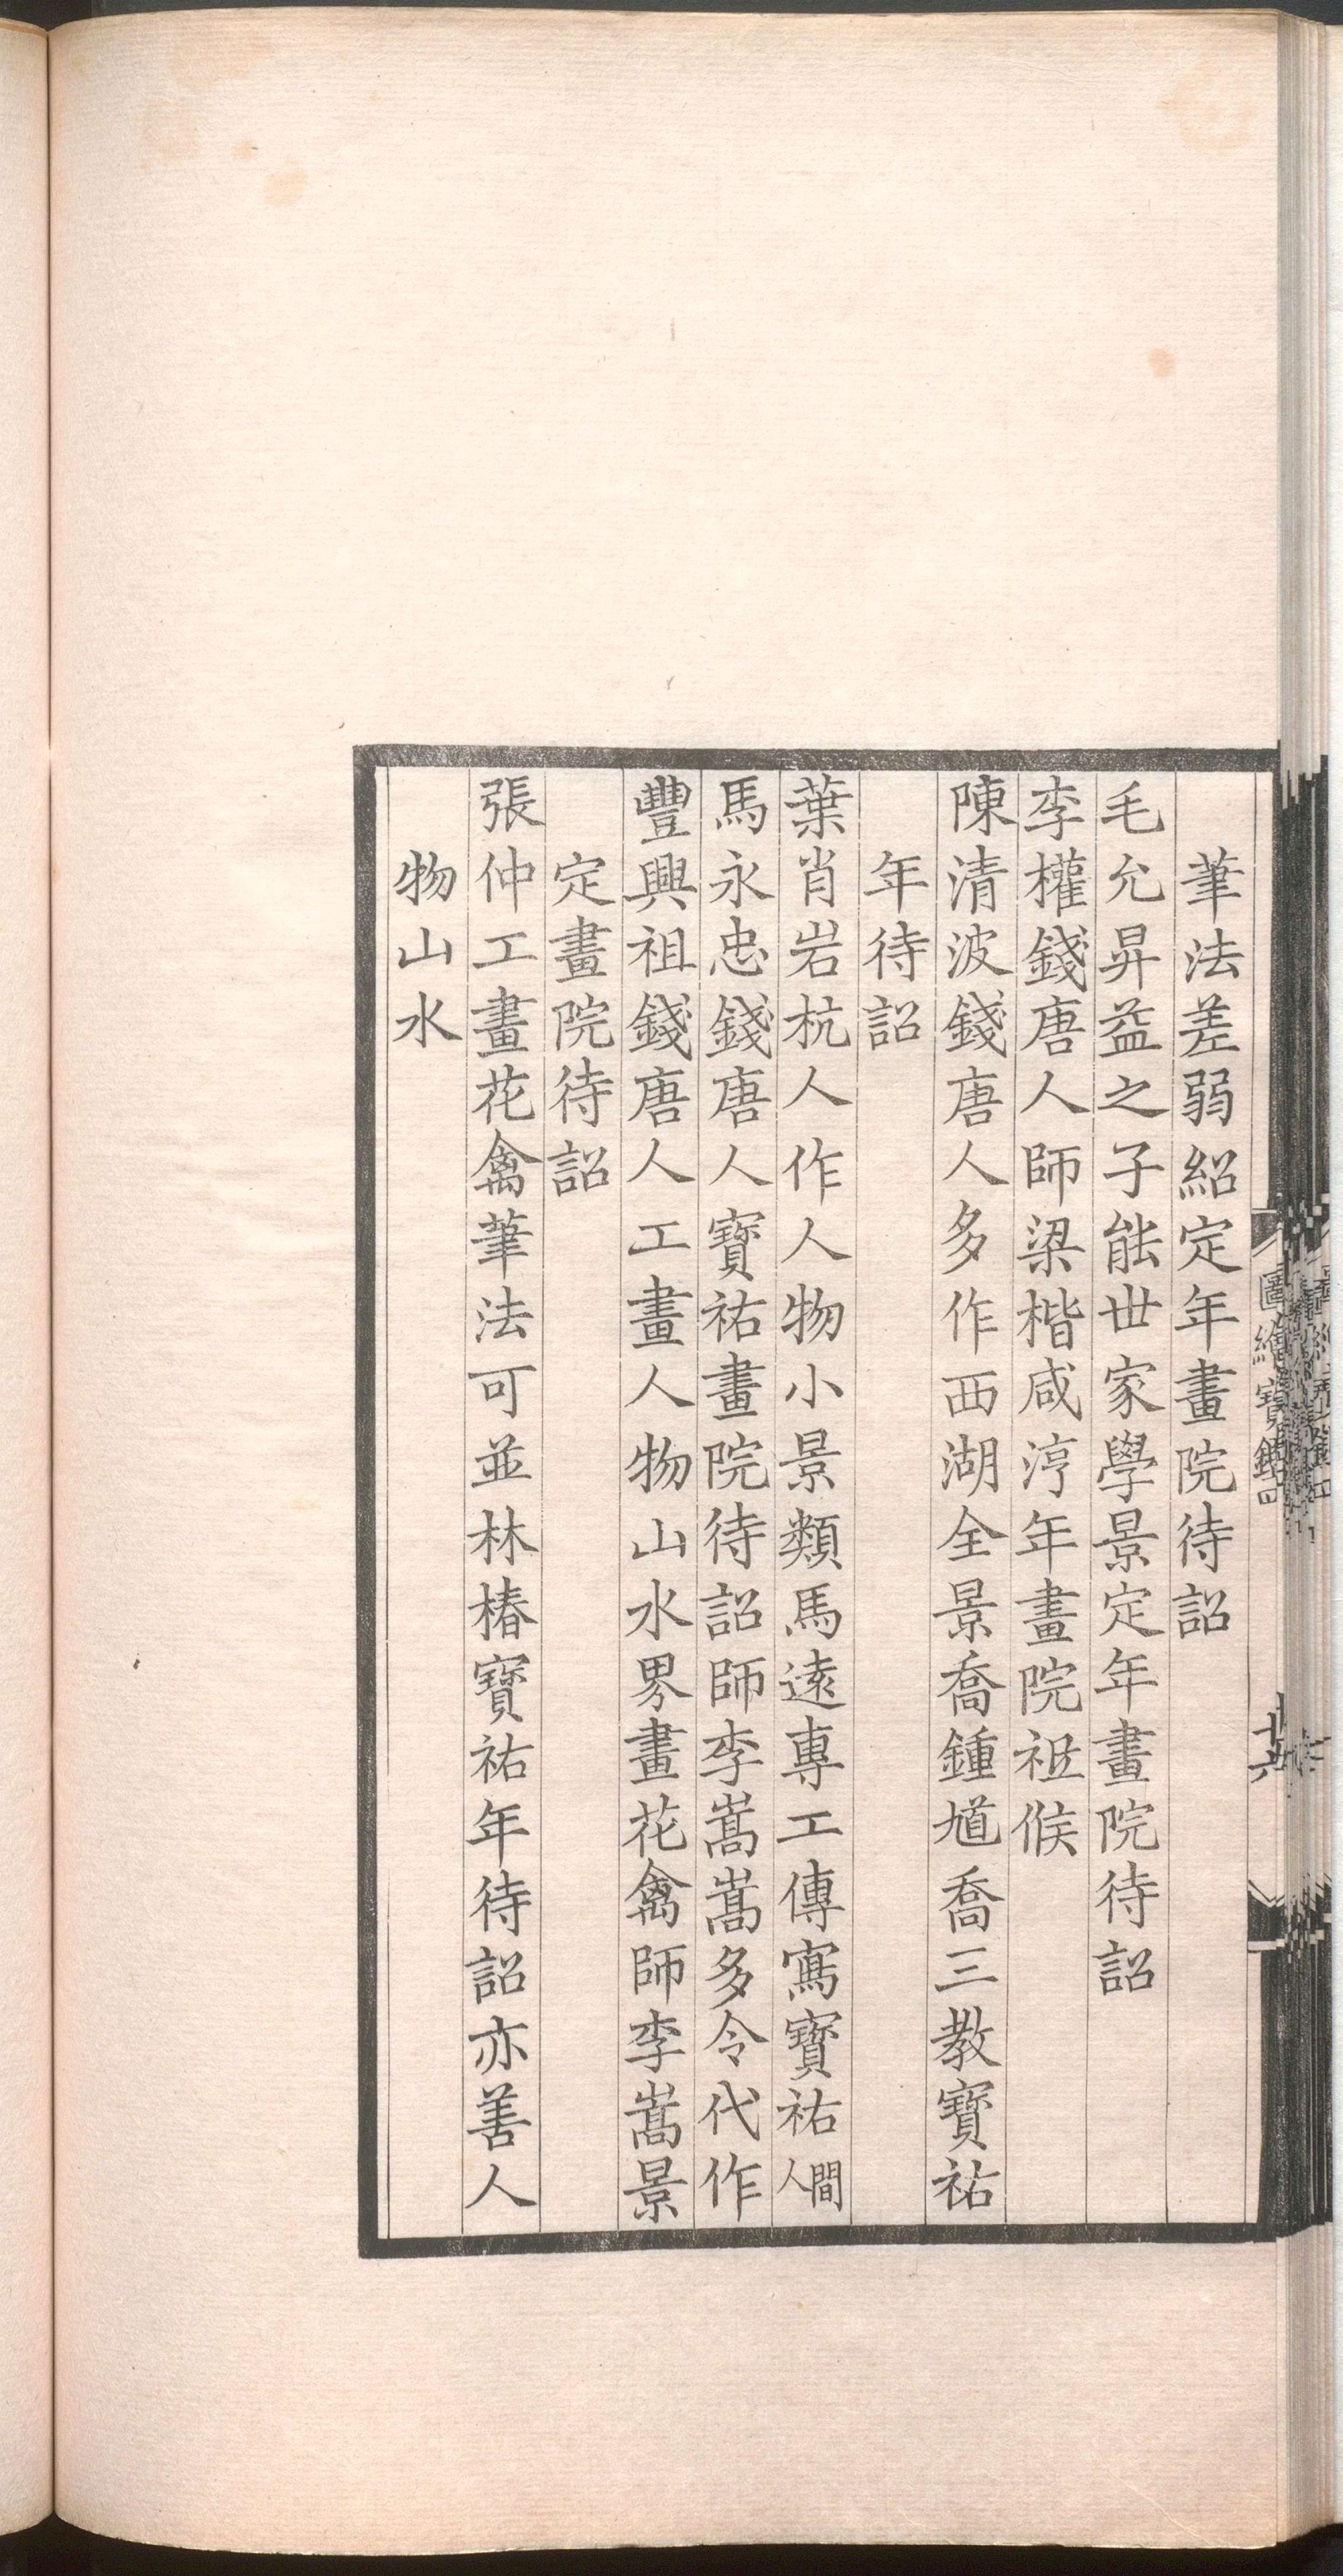 筆法差弱紹定年畫院待詔
毛允昇益之子能世家學景定年畫院待詔
李權錢唐人師梁楷咸淳年畫院祗候
陳清波錢唐人多作西湖全景喬鍾馗喬三教寶祐
年待詔
葉肖岩杭人作人物小景類馬遠專工傳寫寶祐間人
馬永忠錢唐人寶祐畫院待詔師李嵩嵩多令代作
豐興祖錢唐人工畫人物山水界畫花禽師李嵩景
定畫院待詔
張仲工畫花禽筆法可並林椿寶祐年待詔亦善人
物山水
圖繪寶鑑四